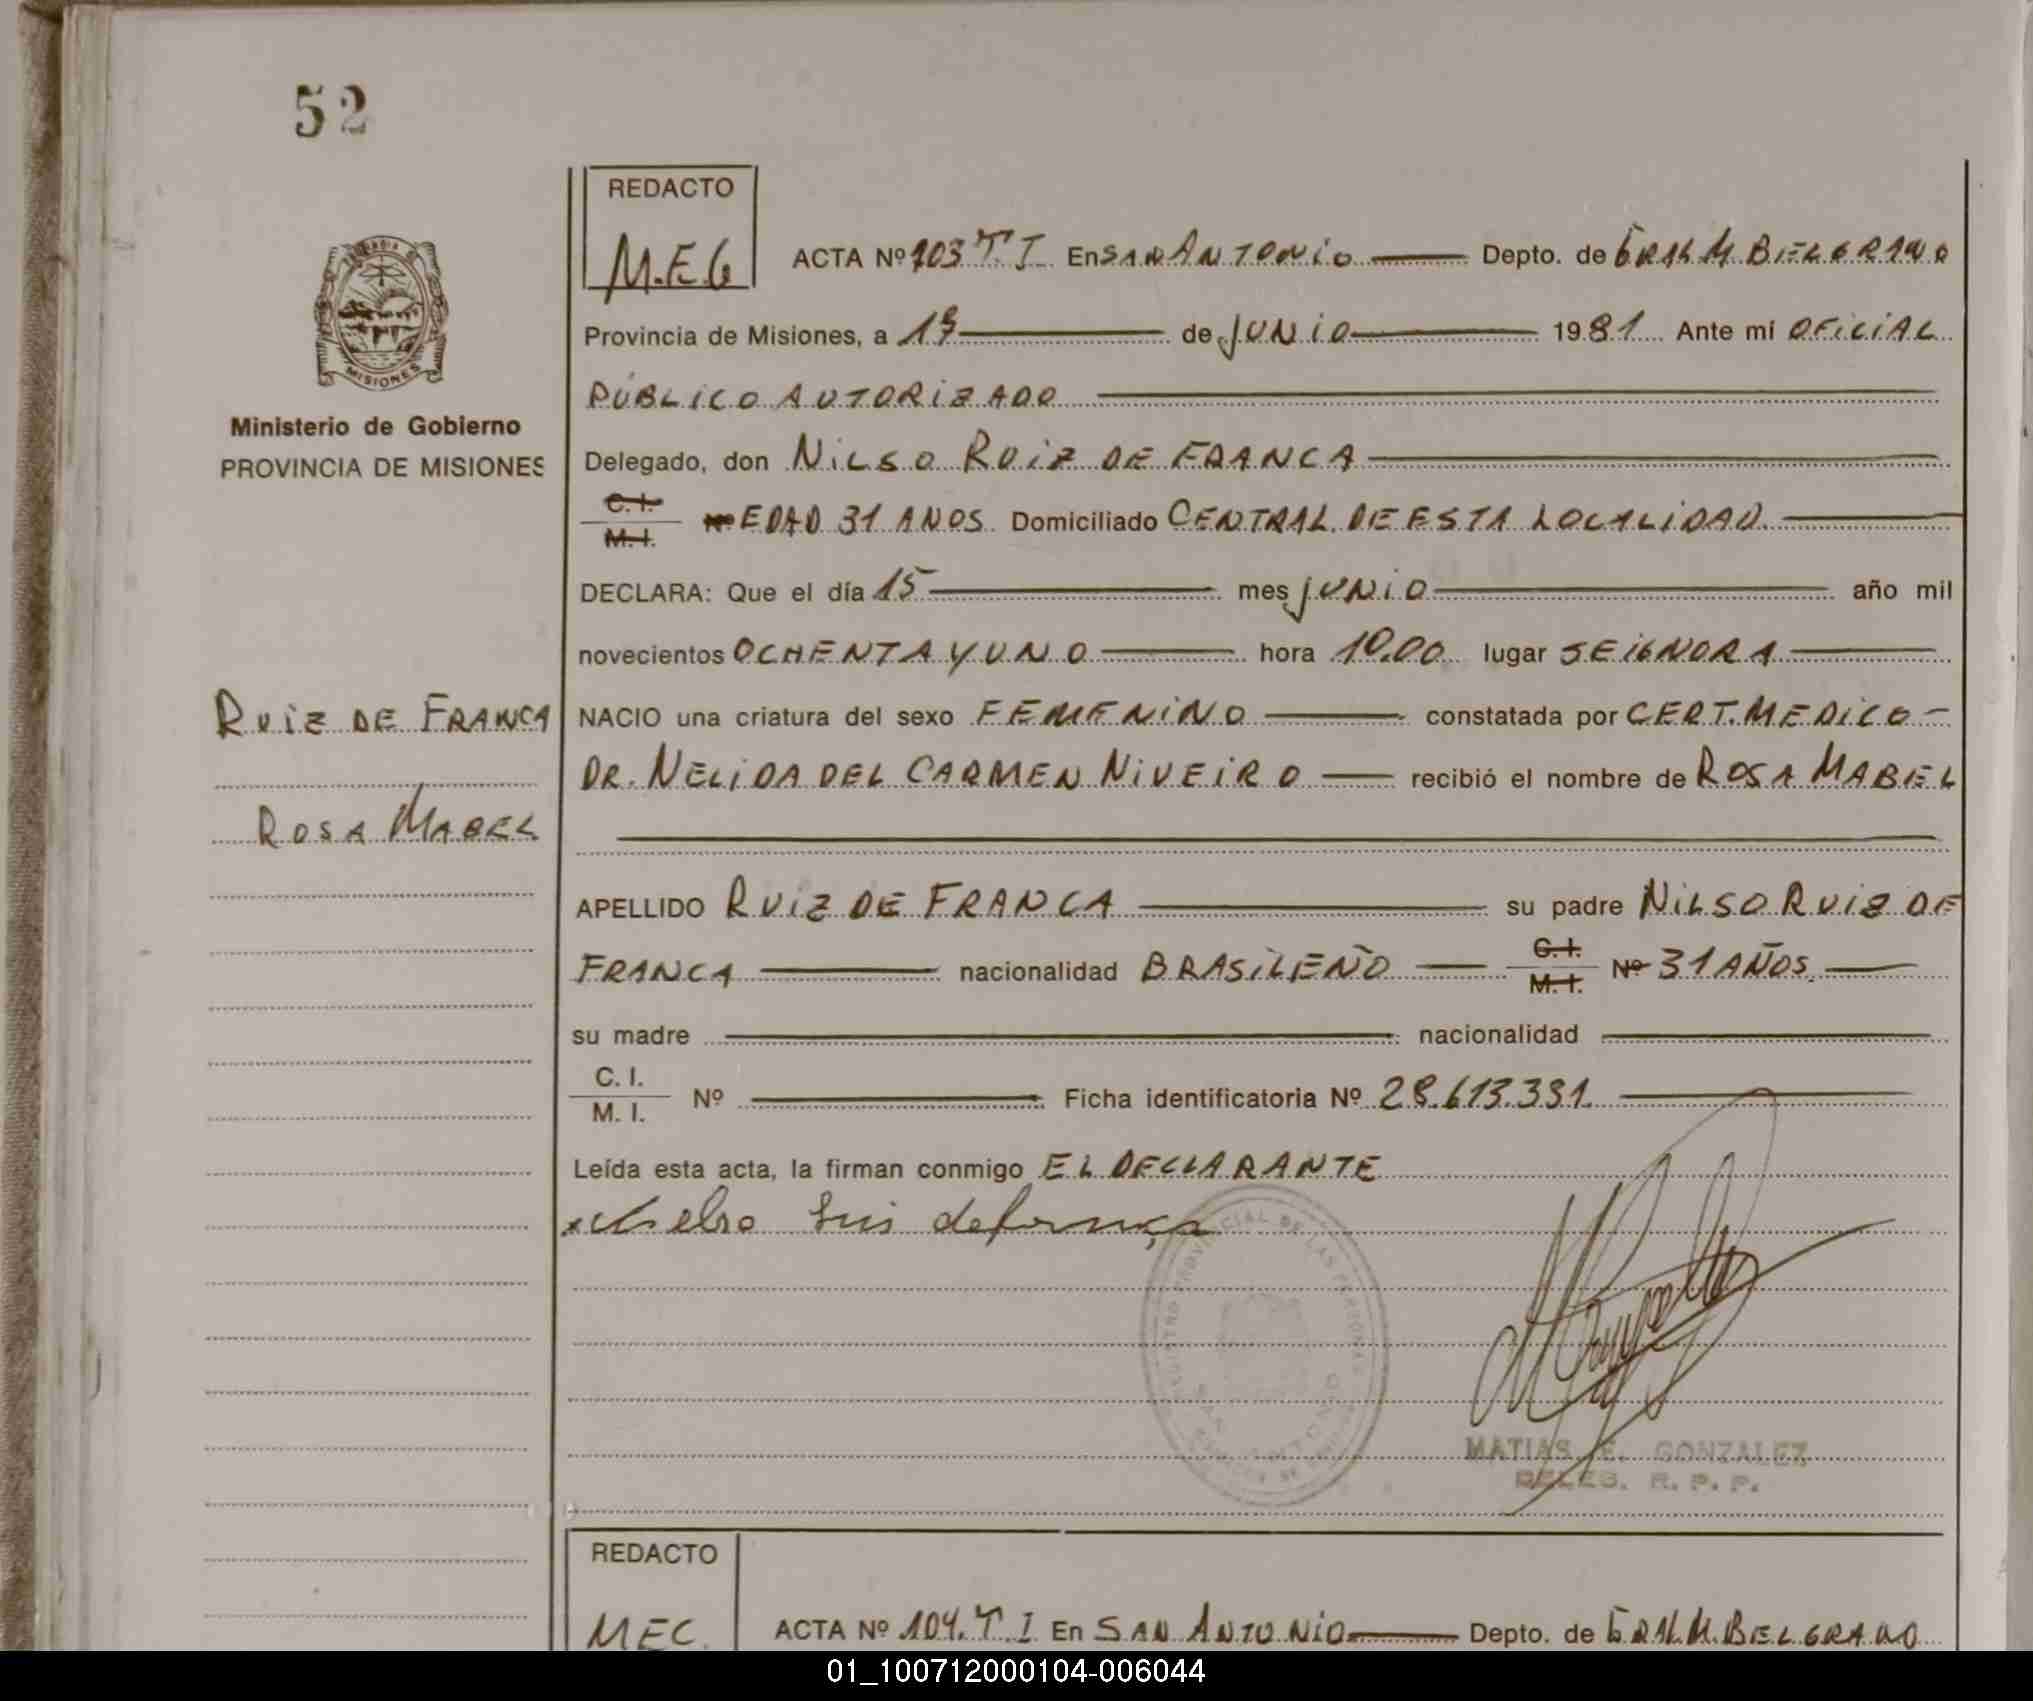 52
REDACTO
M.E.G
ACTA Nº 103 T. I En SAN ANTONIO Depto. de GRAL M. BELGRANO
Provincia de Misiones, a 17 de JUNIO 1981 Ante mí OFICIAL
PÚBLICO AUTORIZADO
MISIONES
Ministerio de Gobierno
PROVINCIA DE MISIONES
Delegado, don NILSO RUIZ DE FRANCA
C. I.
M. I.
Nº EDAD 31 ANOS Domiciliado CENTRAL DE ESTA LOCALIDAD.
DECLARA: Que el día 15 mes JUNIO año mil
novecientos OCHENTA Y UNO hora 10.00 lugar SEIGNORA
RUIZ DE FRANCA
NACIO una criatura del sexo FEMENINO constatada por CERT. MEDICO -
DR. NELIDA DEL CARMEN NIVEIRO recibió el nombre de ROSA MABEL
ROSA MABEL
APELLIDO RUIZ DE FRANCA su padre NILSO RUIZ DE
FRANCA nacionalidad BRASILEÑO C. I. M. I. Nº 31 AÑOS.
su madre nacionalidad
C. I.
M. I.
Nº Ficha identificatoria Nº 28.613.331.
Leída esta acta, la firman conmigo EL DECLARANTE
REGISTRO PROVINCIAL DE LAS PERSONAS
SAN ANTONIO
MATIAS E. GONZALEZ
DELEG. R. P. P.
REDACTO
MEC.
ACTA Nº 104. T. I En SAN ANTONIO Depto. de GRAL M. BELGRANO
01_100712000104-006044